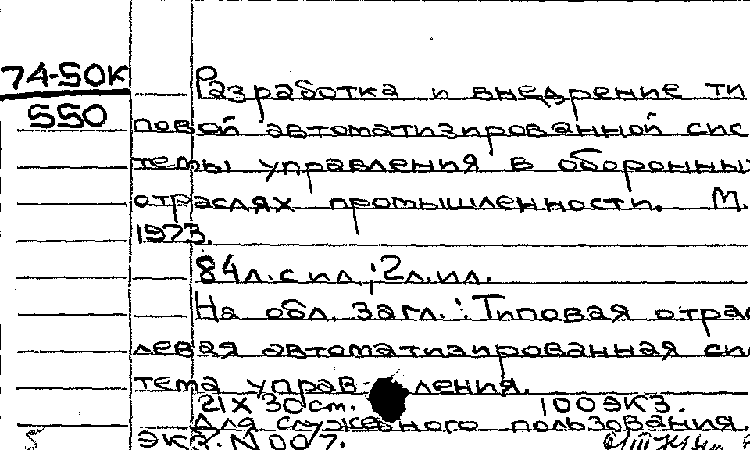 74-50К
550
Разработка и внедрение ти
повой автоматизированной сис
темы управления в оборонных
отраслях промышленности. М.
1973.
84л.с ил.; 2л.ил.
На обл. загл.: Типовая отрас
левая автоматизированная сис
тема управления.
21 х 30 см. 100 экз.
Для служебного пользования.
экз. N 007.